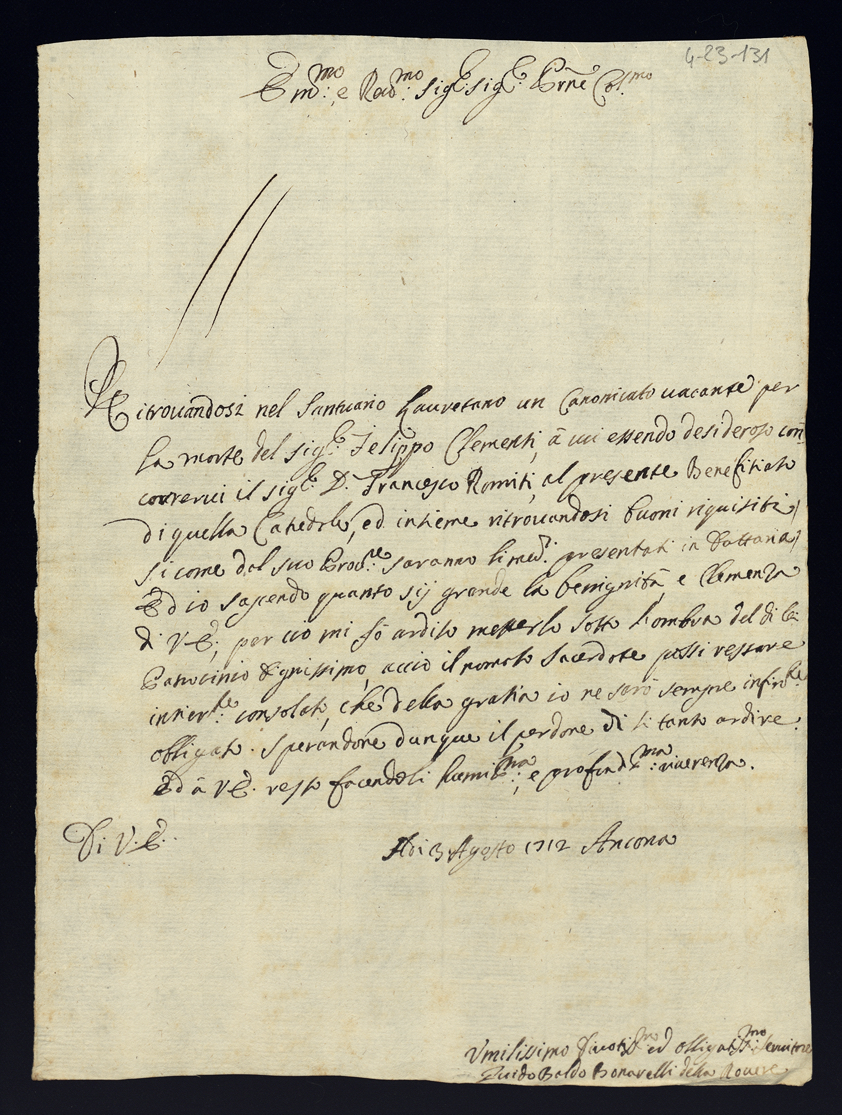 4-23-131
Em:mo e Rad:mo sig:e sig:e Prne Col:mo
Ritrouandosi nel Santuario Lauretano un Canonicato uacante per
la morte del sig:e Felippo Clementi, à cui essendo desideroso con
correrui il sig:e D. Francesco Romiti, al presente Benefitiato
di quella Catedrle, ed insieme ritrouandosi buoni riquisiti,
si come dal suo Proc:re saranno li med:i presentati in Dattaria,
Ed io sapendo quanto sij grande la benignità, e Clemenza
di V.E., per ciò mi fò ardito metterlo sotto l'ombra del di lei
Patrocinio dignissimo, acciò il nomato Sacerdote possi restare
consolato, che della gratia io ne sarò sempre
obligato. Sperandone dunque il perdone di sì tanto ardire.
Ed à V.E. resto facendoli humil:ma, e profond:ma riuerenza.
Di V.E.
Adi 3 Agosto 1712 Ancona
Vmilissimo Diuotis:mo ed obligat:mo seruitore
Guido Baldo Bonarelli della Rouere